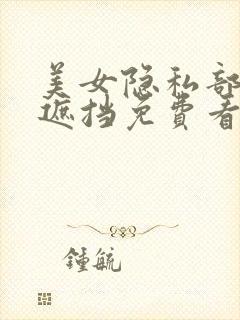 美女隐私部
遮挡免费看
鍾毓